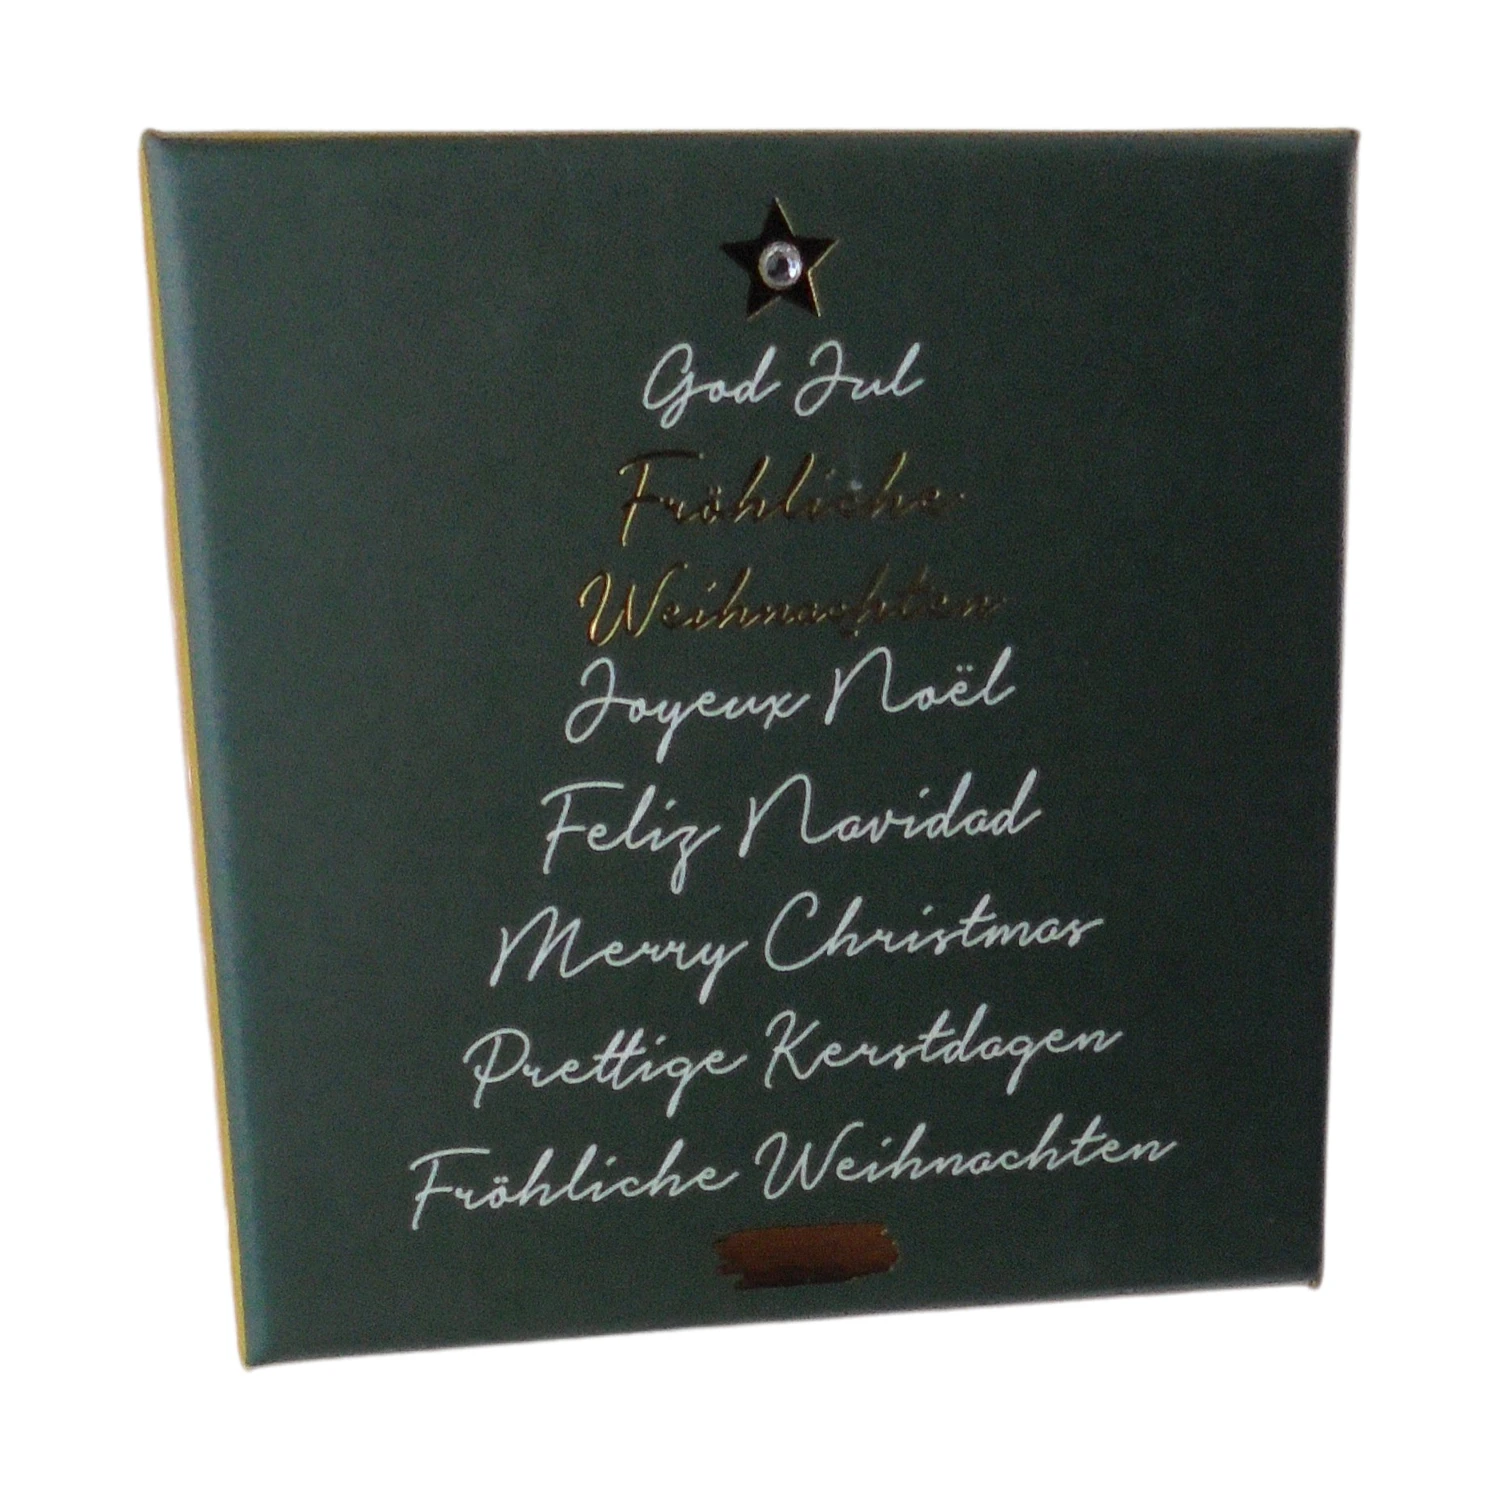 God Jul
Fröhliche
Weihnachten
Joyeux Noël
Feliz Navidad
Merry Christmas
Prettige Kerstdagen
Fröhliche Weihnachten